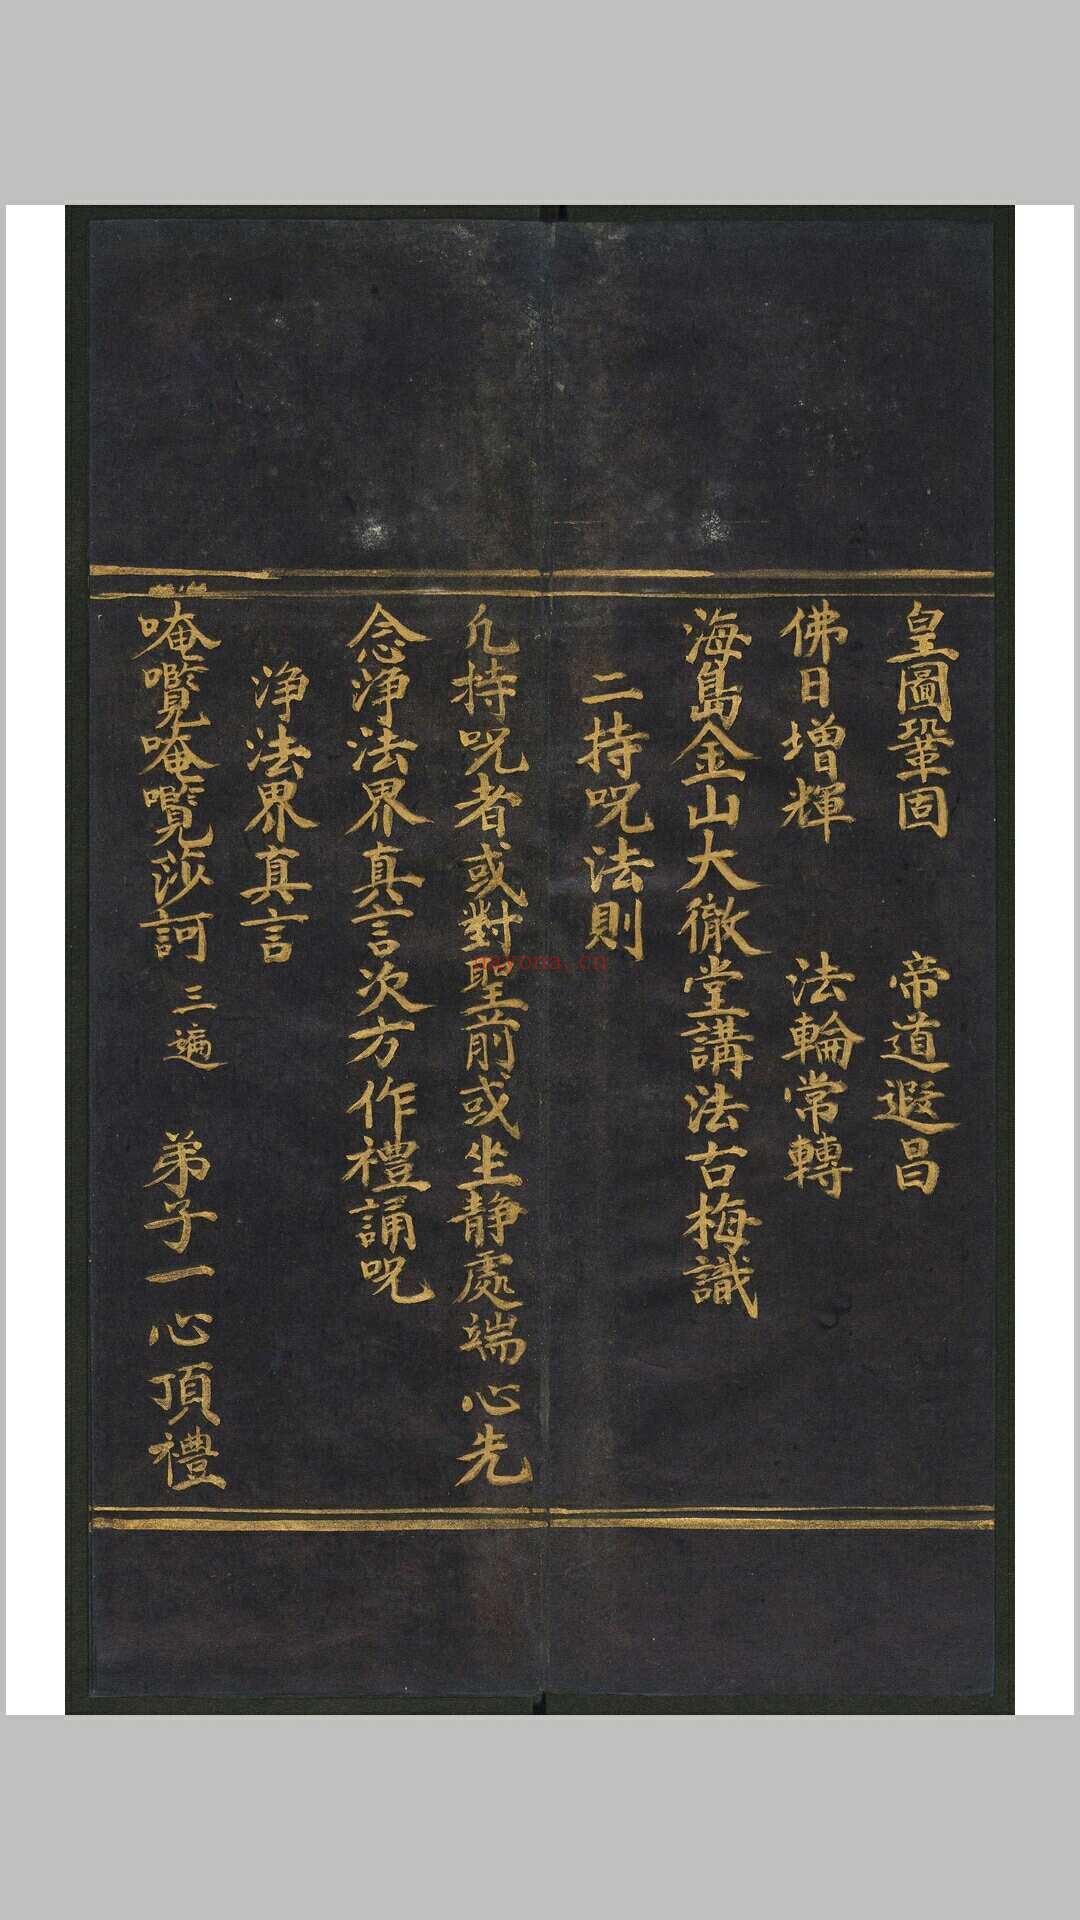 皇圖鞏固 帝道遐昌
佛日增輝 法輪常轉
海島金山大徹堂講法古梅識
二持呪法則
凡持呪者或對聖前或坐静處端心先
念淨法界真言次方作禮誦呪
淨法界真言
唵嚂唵嚂莎訶 三遍 弟子一心頂禮
nayona.cn